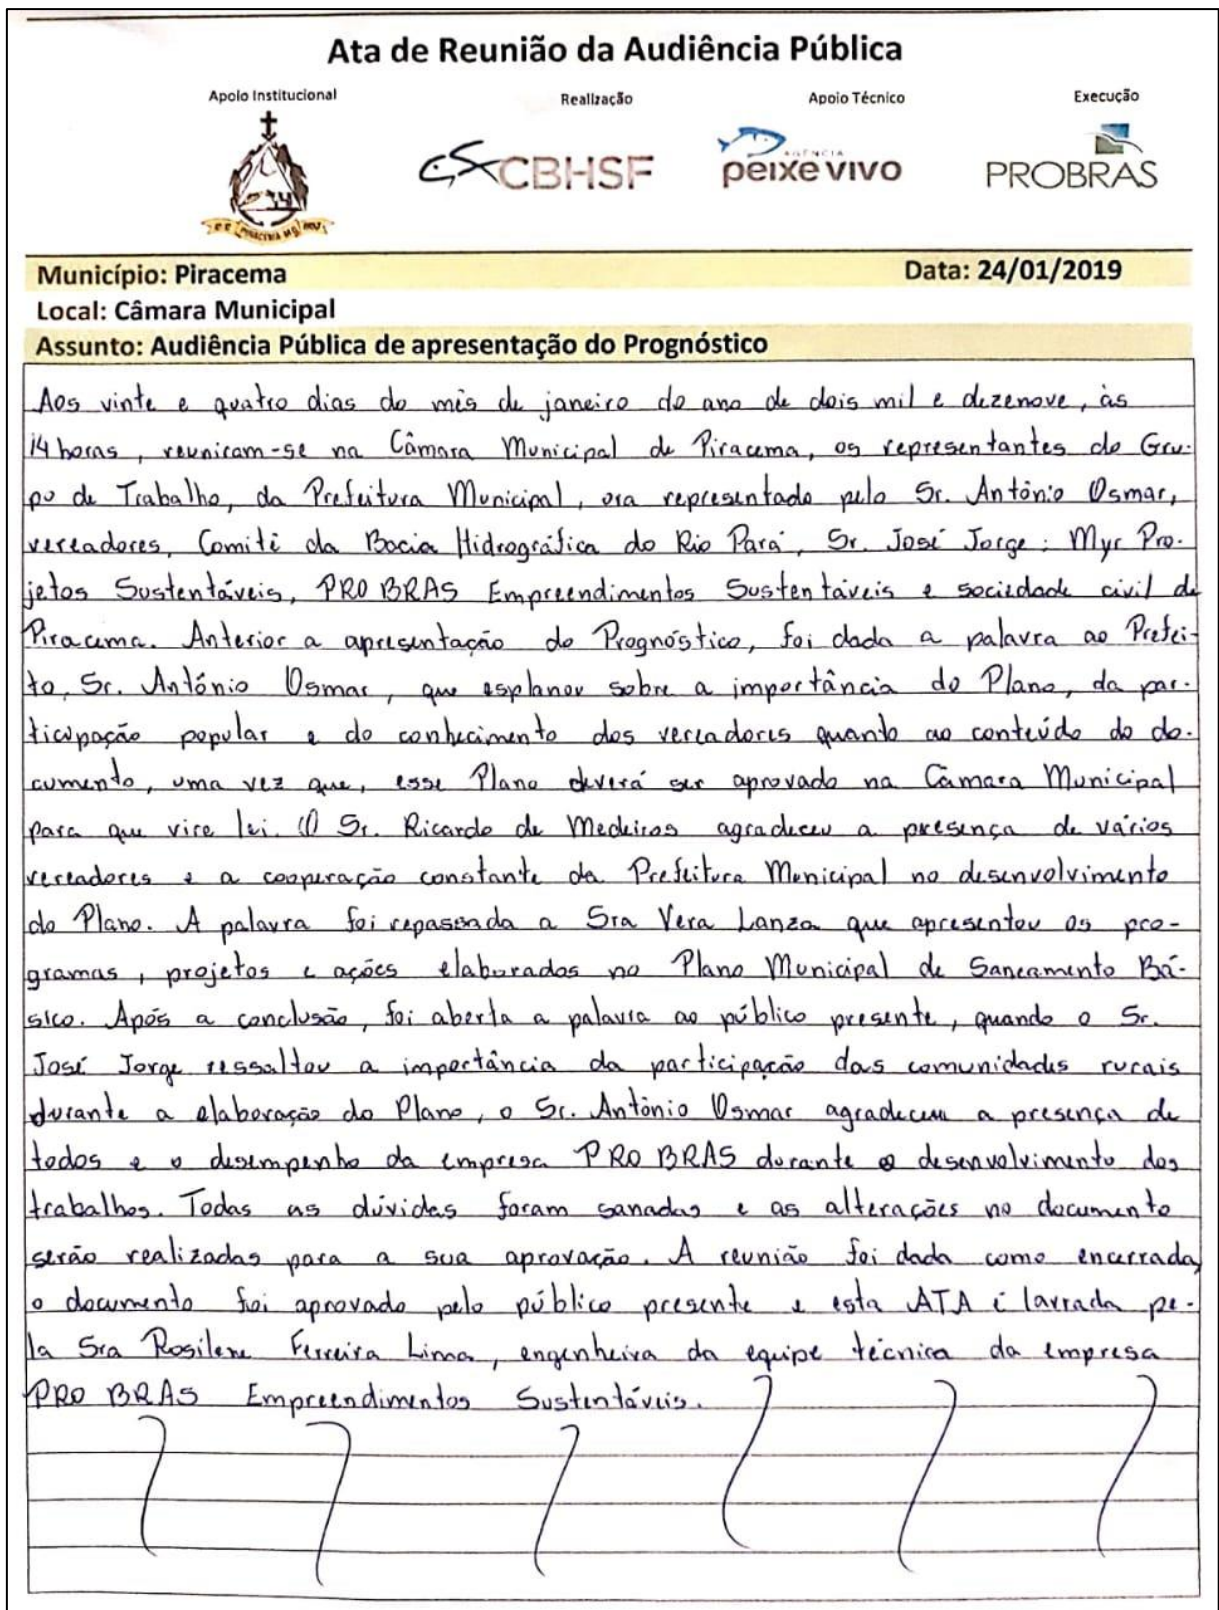 Ata de Reunião da Audiência Pública
Apoio Institucional Realização Apoio Técnico Execução
CBHSF AGÊNCIA peixe vivo PROBRAS
PIRACEMA MG
Município: Piracema Data: 24/01/2019
Local: Câmara Municipal
Assunto: Audiência Pública de apresentação do Prognóstico
Aos vinte e quatro dias do mês de janeiro do ano de dois mil e dezenove, às
14 horas, reuniram-se na Câmara Municipal de Piracema, os representantes do Gru-
po de Trabalho, da Prefeitura Municipal, ora representado pelo Sr. Antônio Osmar,
vereadores, Comitê da Bacia Hidrográfica do Rio Pará, Sr. José Jorge; Myr Pro-
jetos Sustentáveis, PRO BRAS Empreendimentos Sustentáveis e sociedade civil de
Piracema. Anterior a apresentação do Prognóstico, foi dada a palavra ao Prefei-
to, Sr. Antônio Osmar, que esplanou sobre a importância do Plano, da par-
ticipação popular e do conhecimento dos vereadores quanto ao conteúdo do do-
cumento, uma vez que, esse Plano deverá ser aprovado na Câmara Municipal
para que vire lei. O Sr. Ricardo de Medeiros agradeceu a presença de vários
vereadores e a cooperação constante da Prefeitura Municipal no desenvolvimento
do Plano. A palavra foi repassada a Sra Vera Lanza que apresentou os pro-
gramas, projetos e ações elaborados no Plano Municipal de Saneamento Bá-
sico. Após a conclusão, foi aberta a palavra ao público presente, quando o Sr.
José Jorge ressaltou a importância da participação das comunidades rurais
durante a elaboração do Plano, o Sr. Antônio Osmar agradeceu a presença de
todos e o desempenho da empresa PRO BRAS durante o desenvolvimento dos
trabalhos. Todas as dúvidas foram sanadas e as alterações no documento
serão realizadas para a sua aprovação. A reunião foi dada como encerrada,
o documento foi aprovado pelo público presente e esta ATA é lavrada pe-
la Sra Rosilene Ferreira Lima, engenheira da equipe técnica da empresa
PRO BRAS Empreendimentos Sustentáveis.